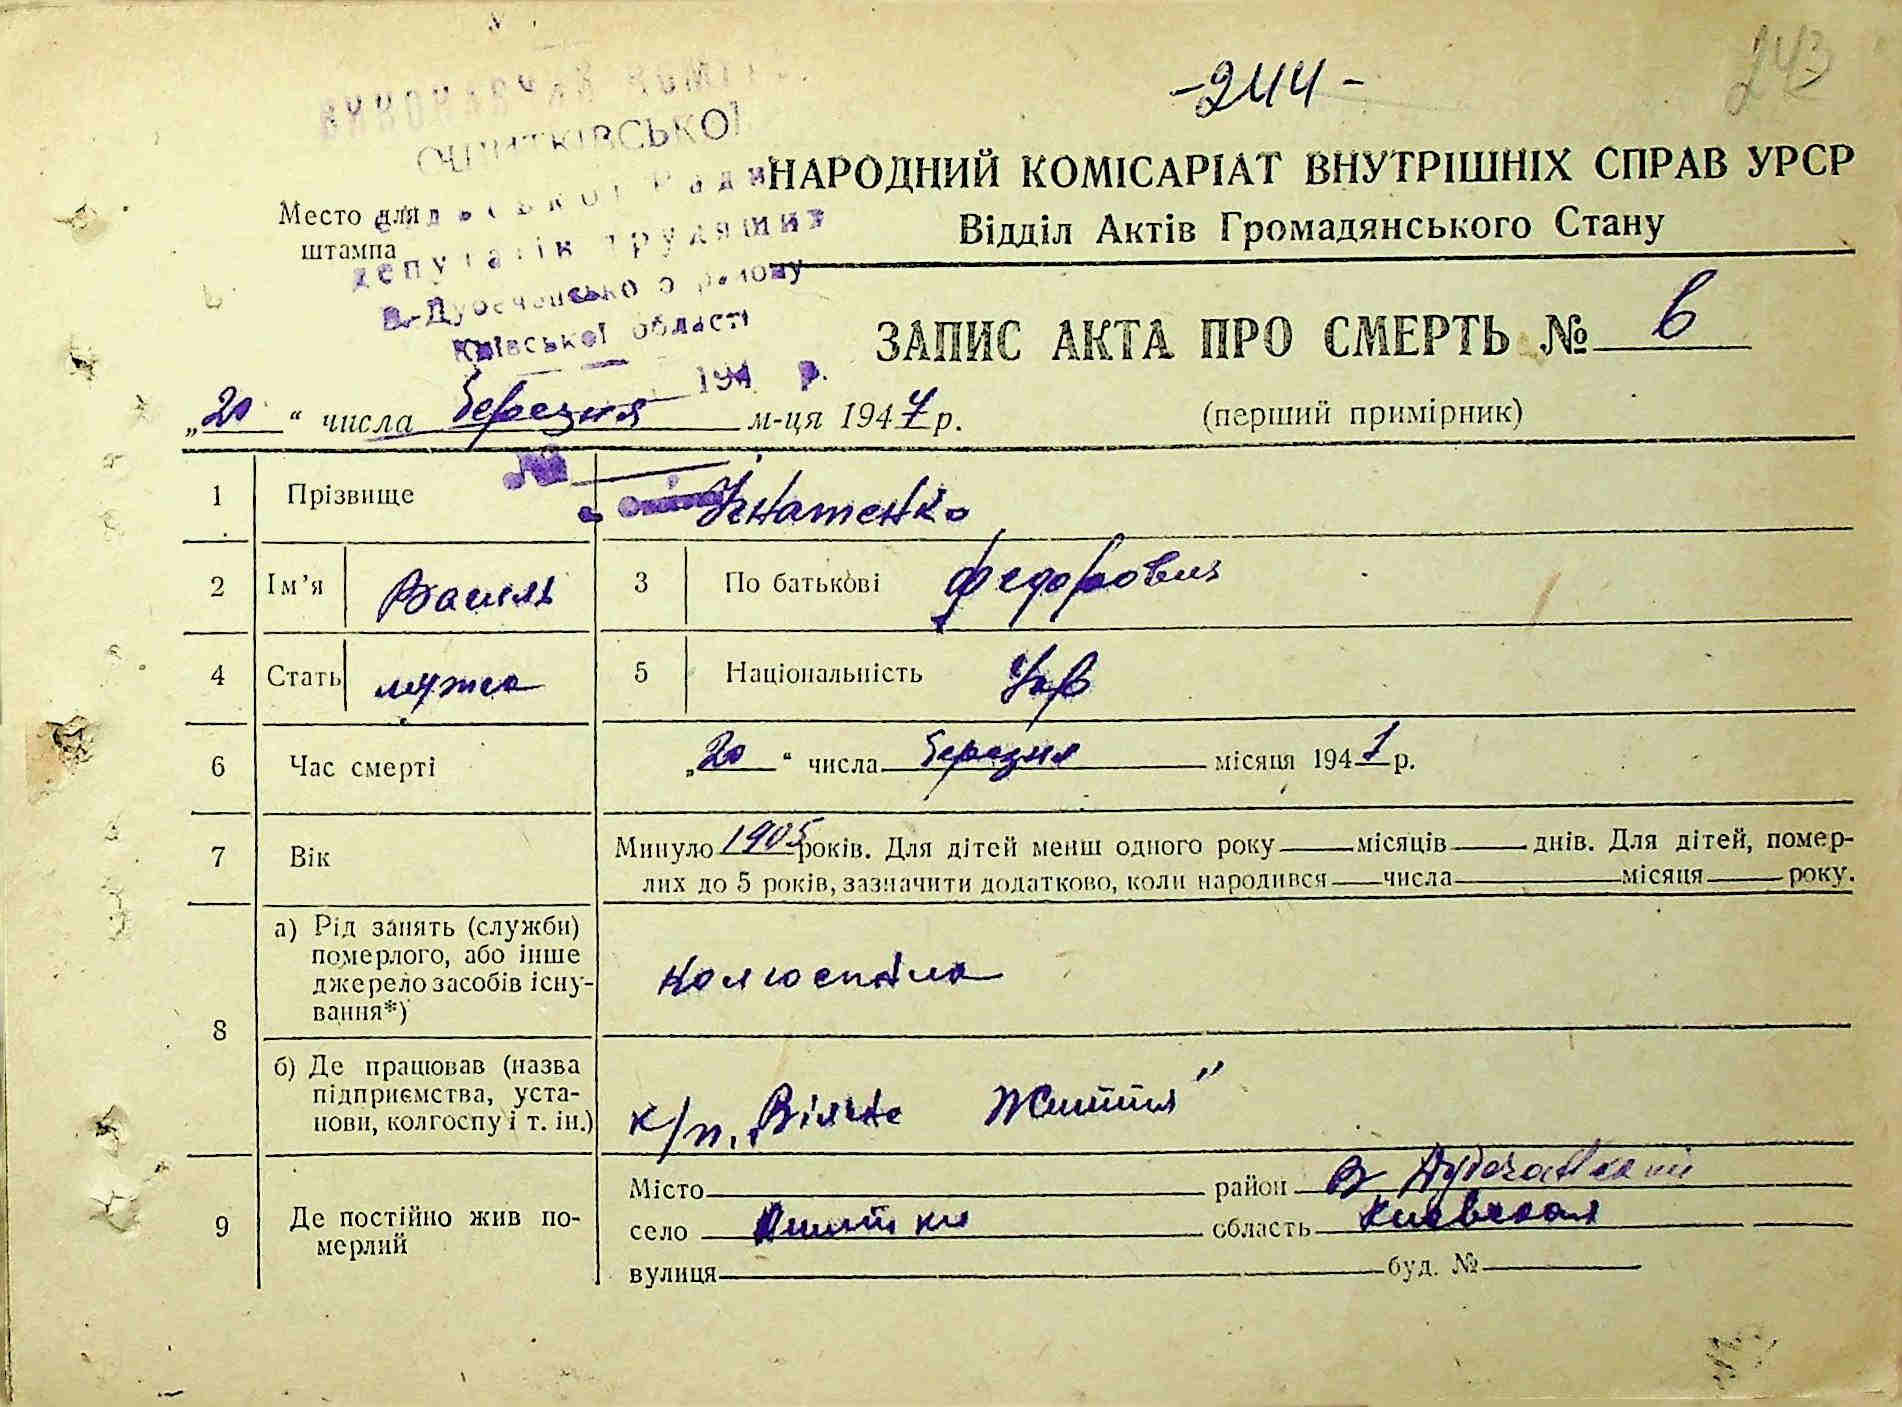 -244-
243
ОШИТКІВСЬКОЇ
депутатів трудящих
Київської області
194 р.
Место для штампа
НАРОДНИЙ КОМІСАРІАТ ВНУТРІШНІХ СПРАВ УРСР
Відділ Актів Громадянського Стану
ЗАПИС АКТА ПРО СМЕРТЬ № 6
„20“ числа березня м-ця 1947 р.
(перший примірник)
№
1 Прізвище Ігнатенко
2 Ім’я Василь 3 По батькові Федорович
4 Стать мужс 5 Національність Укр
6 Час смерті „20“ числа березня місяця 1947 р.
7 Вік Минуло 1905 років. Для дітей менш одного року місяців днів. Для дітей, помер-
лих до 5 років, зазначити додатково, коли народився числа місяця року.
8 а) Рід занять (служби)
померлого, або інше
джерело засобів існу-
вання*)
б) Де працював (назва
підприємства, уста-
нови, колгоспу і т. ін.)
к/п. „Вільне Життя"
9 Де постійно жив по-
мерлий
Місто район В Дубечанский
село Ошитки область Киевская
вулиця буд. №